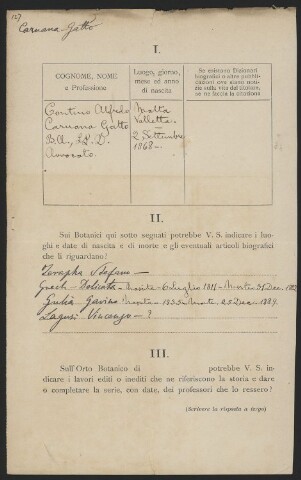 127
Caruana-Gatto
I.
COGNOME, NOME
e Professione
Luogo, giorno,
mese ed anno
di nascita
Se esistono Dizionari
biografici o altre pubbli-
cazioni ove siano noti-
zie sulla vita del titolare,
se ne faccia la citazione
Contino Alfredo
Caruana Gatto
B.A., LL. D.
Avvocato.
Malta
Valletta.
2 Settembre
1868 —
II.
Sui Botanici qui sotto segnati potrebbe V. S. indicare i luo-
ghi e date di nascita e di morte e gli eventuali articoli biografici
che li riguardano?
Zerapha Stefano —
Grech-Delicata — nascita — 6 Luglio 1811 — Morte 31 Dec. 1882
Gulia Gavino nascita — 1835 — Morte 23 Dec. 1889.
Lagusi Vincenzo — ?
III.
Sull'Orto Botanico di potrebbe V. S. in-
dicare i lavori editi o inediti che ne riferiscono la storia e dare
o completare la serie, con date, dei professori che lo ressero?
(Scrivere la risposta a tergo)